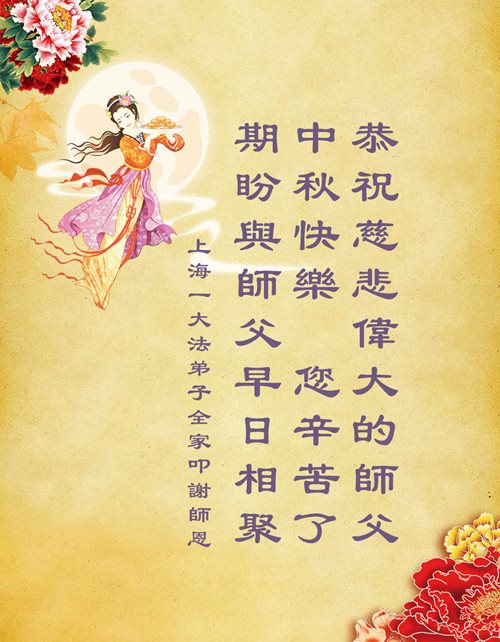 恭祝慈悲偉大的師父
中秋快樂 您辛苦了
期盼與師父早日相聚
上海一大法弟子全家叩謝師恩